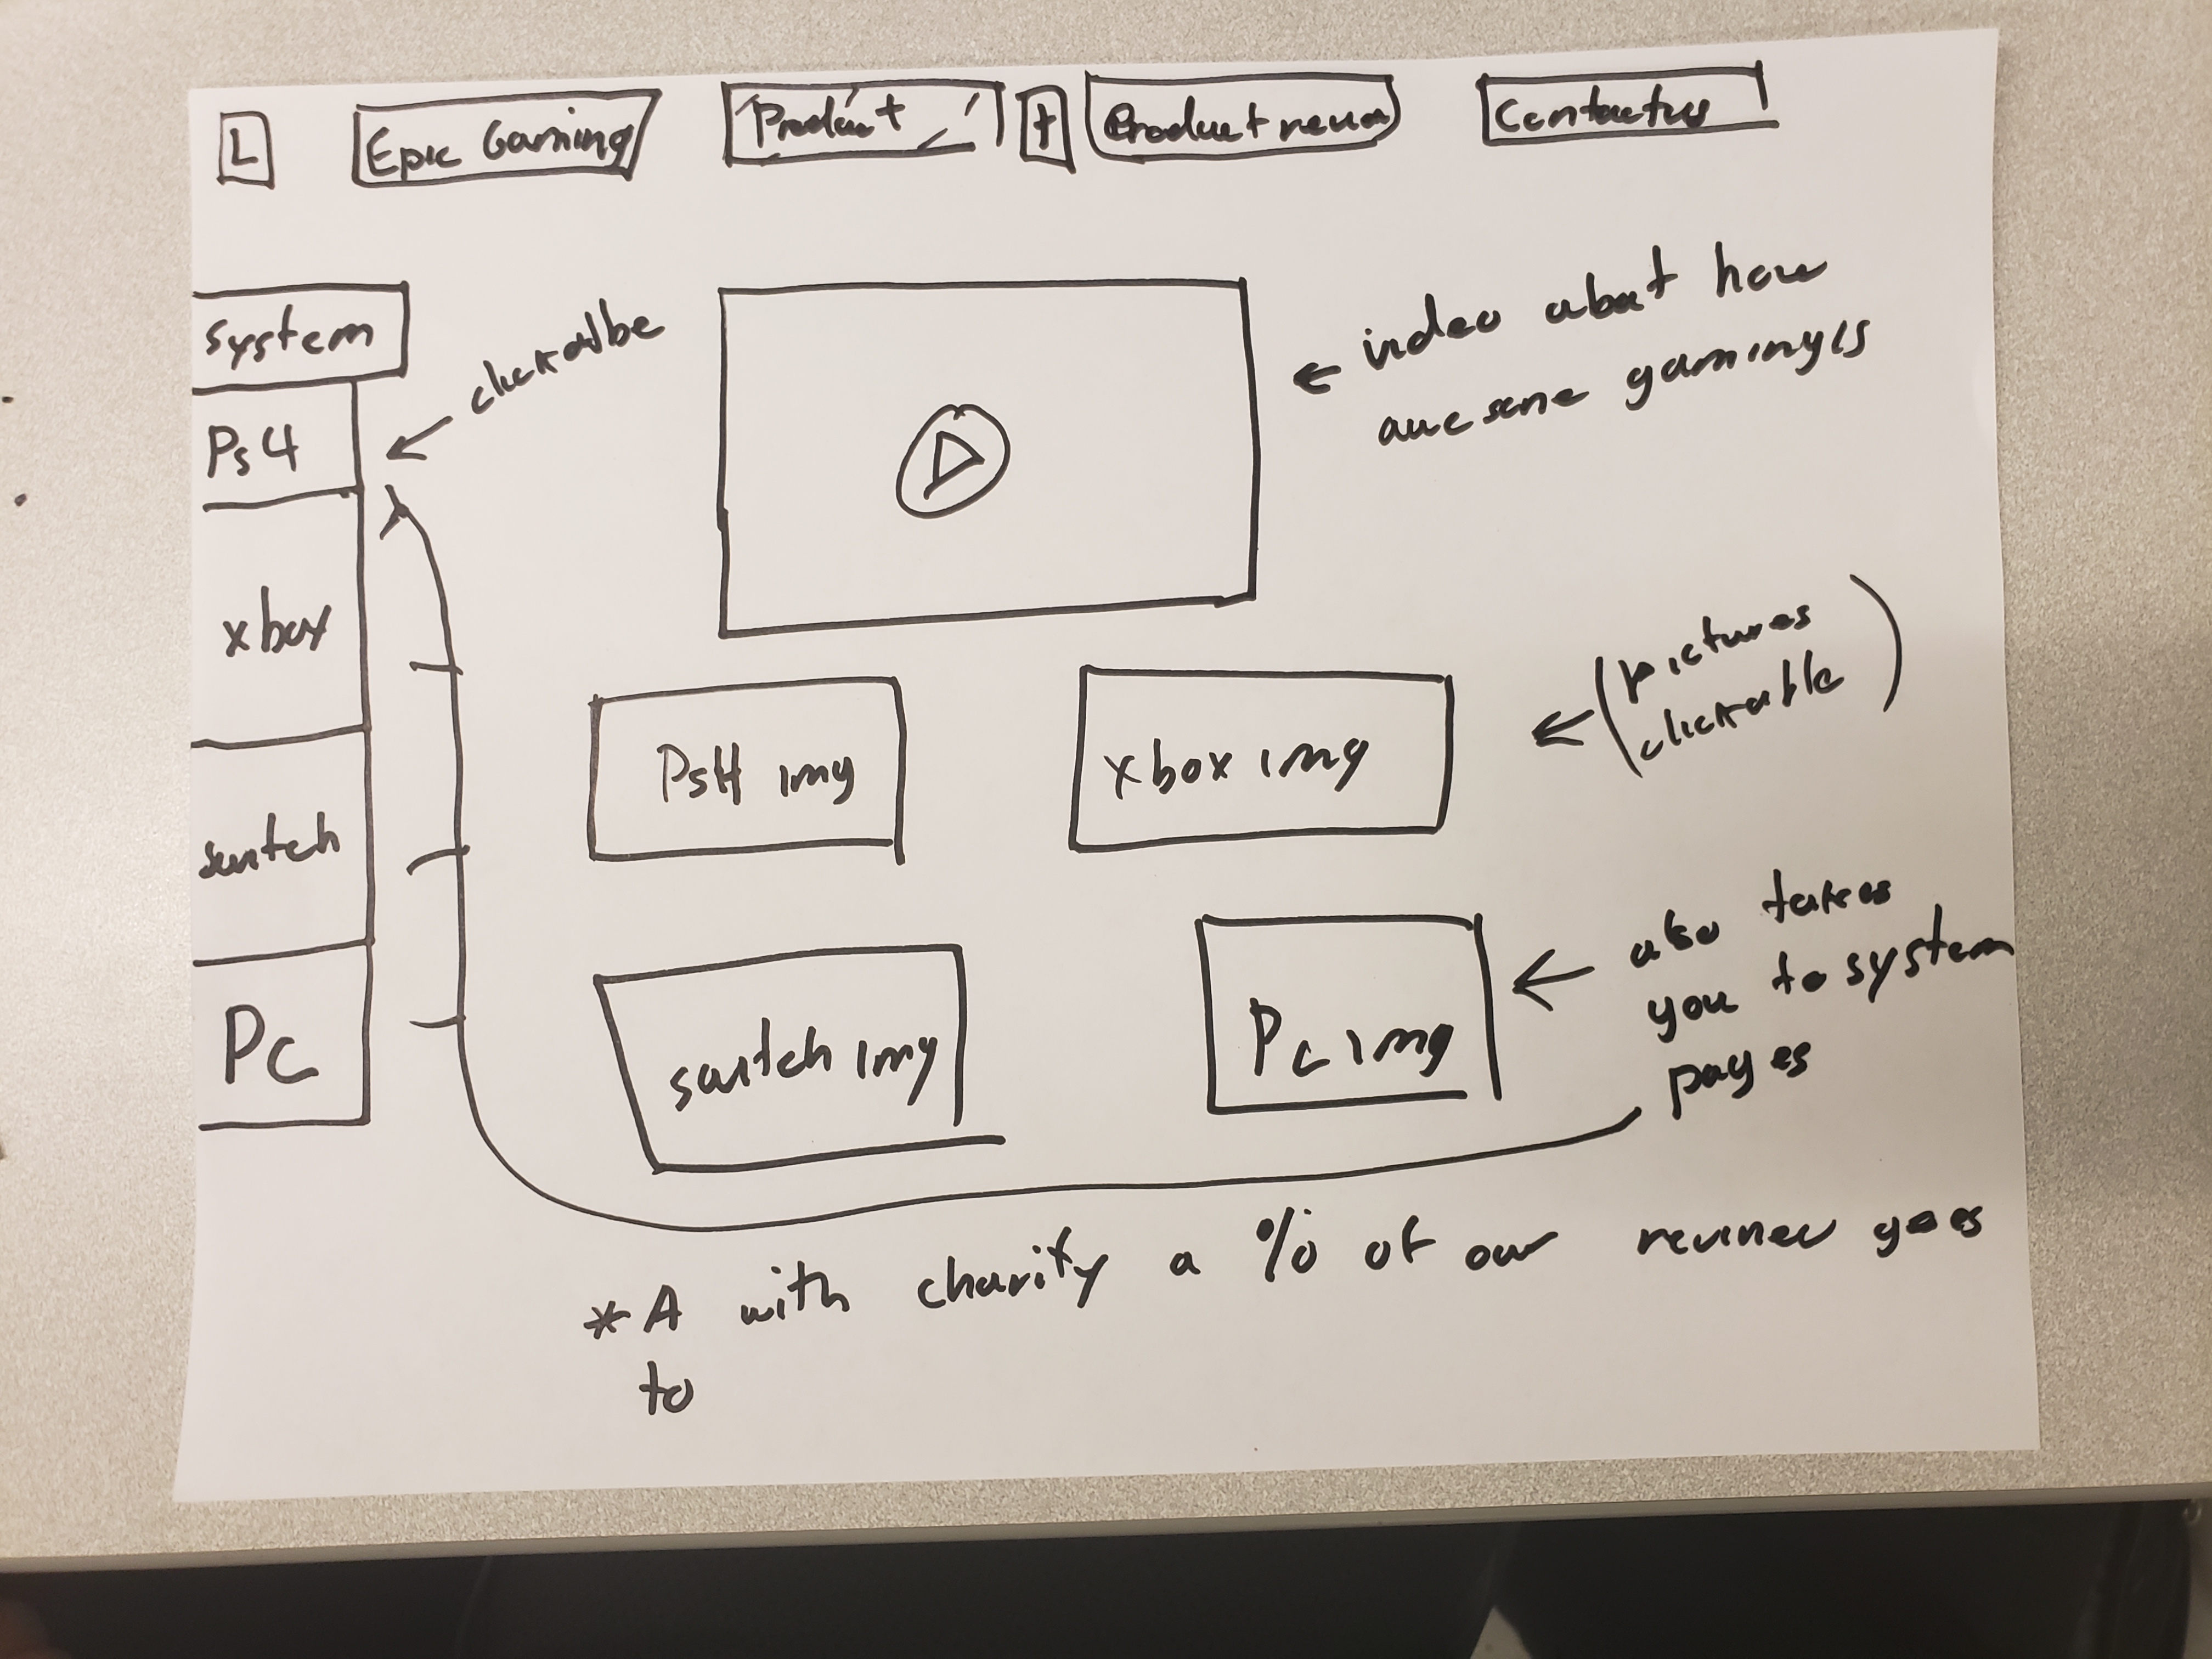 L
Epic Gaming
Product
+
Product
Contact us
System
Ps4
xbox
switch
PC
clickalbe
video about how
awesome gaming is
Ps4 img
xbox img
(pictures
clickable)
switch img
Pc img
also takes
you to system
pages
*A with charity a % of our revinew goes
to